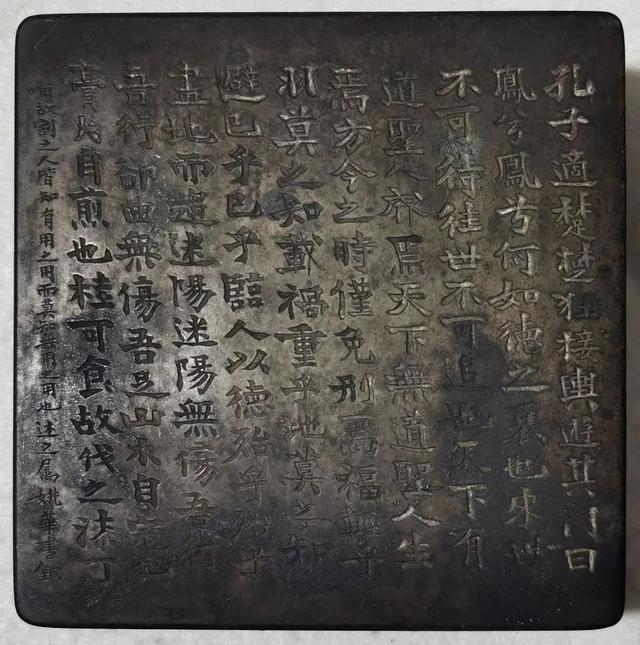 孔子適楚楚狂接輿遊其門曰
鳳兮鳳兮何如德之衰也來世
不可待往世不可追也天下有
道聖人成焉天下無道聖人生
焉方今之時僅免刑焉福輕乎
羽莫之知載禍重乎地莫之知
避已乎已乎臨人以德殆乎殆乎
畫地而趨迷陽迷陽無傷吾行
吾行郤曲無傷吾足山木自寇也
膏火自煎也桂可食故伐之漆可
用故割之人皆知有用之用而莫知無用之用也 述之屬姚華書